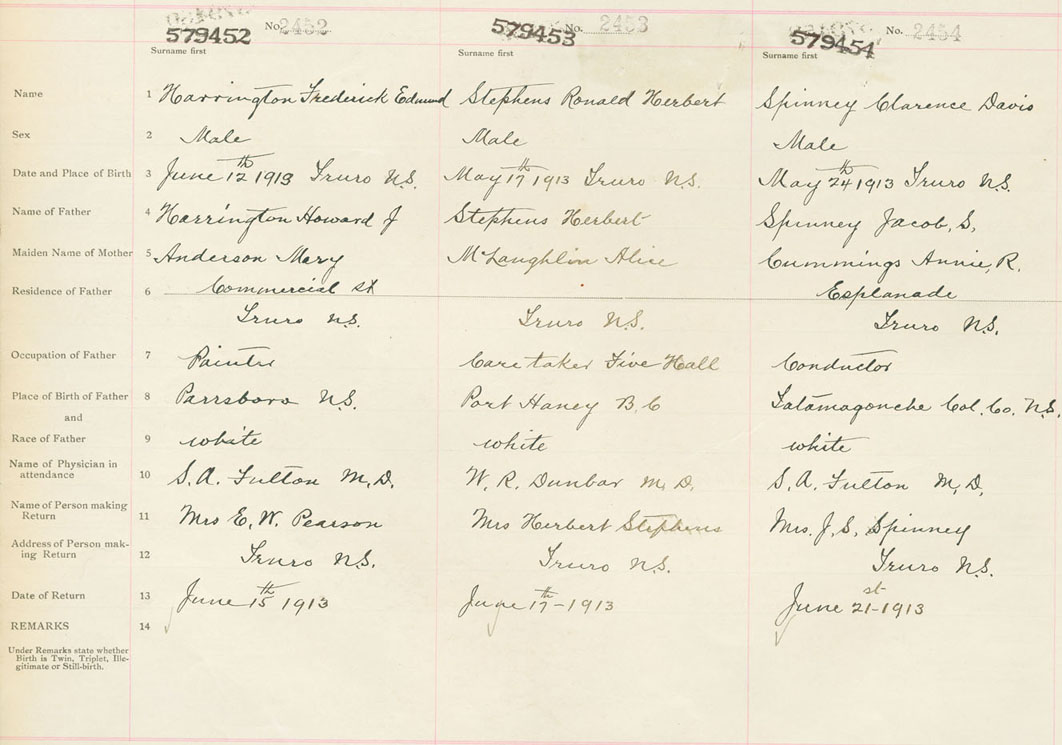 579452 No. 2452 579453 No. 2453 579454 No. 2454
Surname first Surname first Surname first
Name 1 Harrington Frederick Edmund Stephens Ronald Herbert Spinney Clarence Davis
Sex 2 Male Male Male
Date and Place of Birth 3 June 12th 1913 Truro N.S. May 17th 1913 Truro N.S. May 24th 1913 Truro N.S.
Name of Father 4 Harrington Howard J Stephens Herbert Spinney Jacob, S,
Maiden Name of Mother 5 Anderson Mary McLaughlin Alice Cummings Annie, R.
Residence of Father 6 Commercial St Esplanade
Truro N.S. Truro N.S. Truro N.S.
Occupation of Father 7 Painter Caretaker Five Hall Conductor
Place of Birth of Father 8 Parrsboro N.S. Port Haney B.C Tatamagouche Col. Co. N.S.
and
Race of Father 9 white white white
Name of Physician in
attendance 10 S. A. Fulton M.D. W. R. Dunbar M.D. S. A. Fulton M,D,
Name of Person making
Return 11 Mrs E. W. Pearson Mrs Herbert Stephens Mrs. J, S, Spinney
Address of Person mak-
ing Return 12 Truro N.S. Truro N.S. Truro N.S.
Date of Return 13 June 15th 1913 June 17th-1913 June 21st-1913
REMARKS 14
Under Remarks state whether
Birth is Twin, Triplet, Ille-
gitimate or Still-birth.